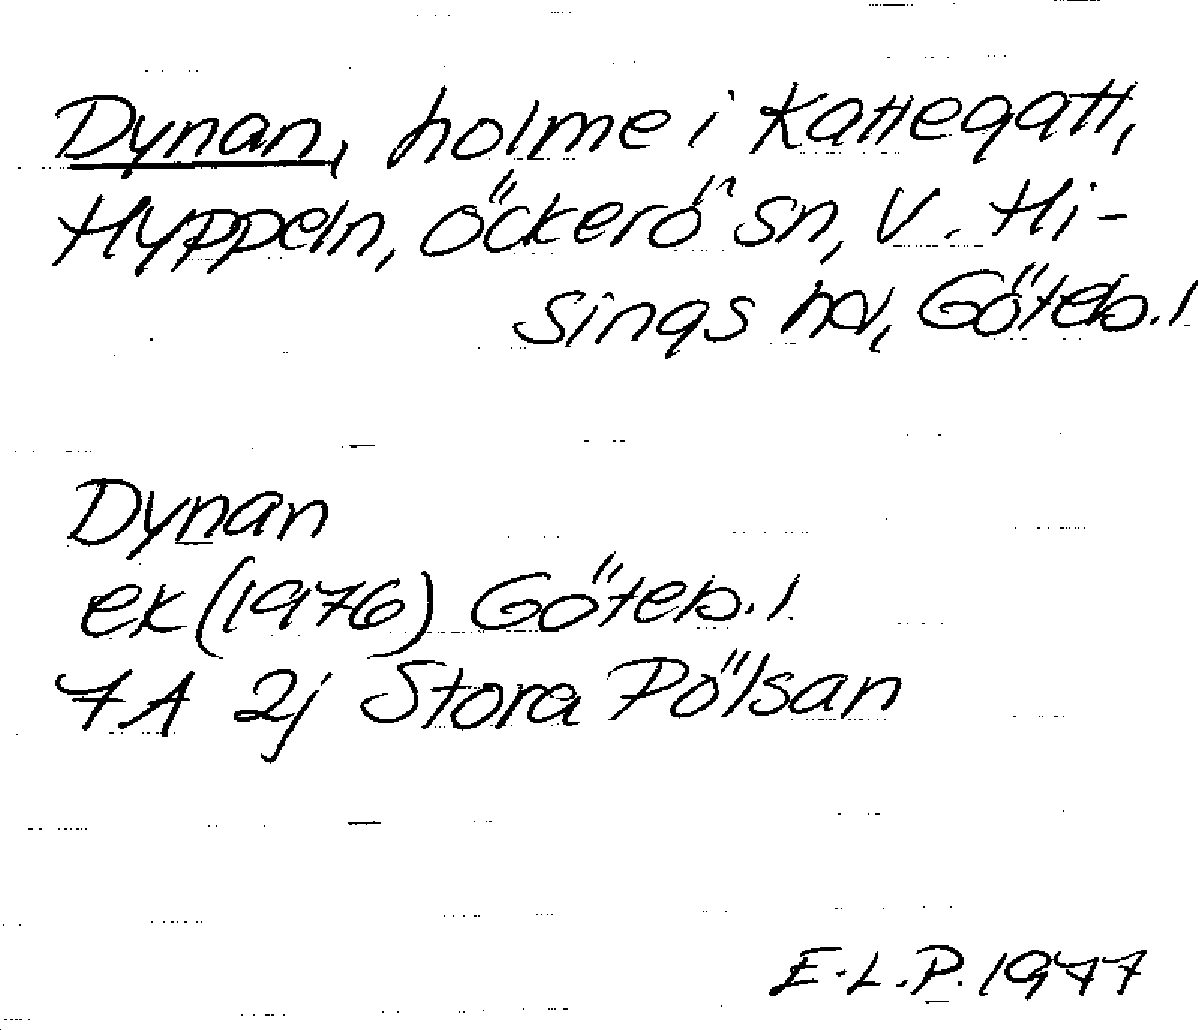 Dynan, holme i Kattegatt,
Hyppeln, Öckerö sn, V. Hi-
sings hd, Göteb. l
Dynan
ek (1976) Göteb. l.
7A 2j Stora Pölsan
E.L.P. 1977